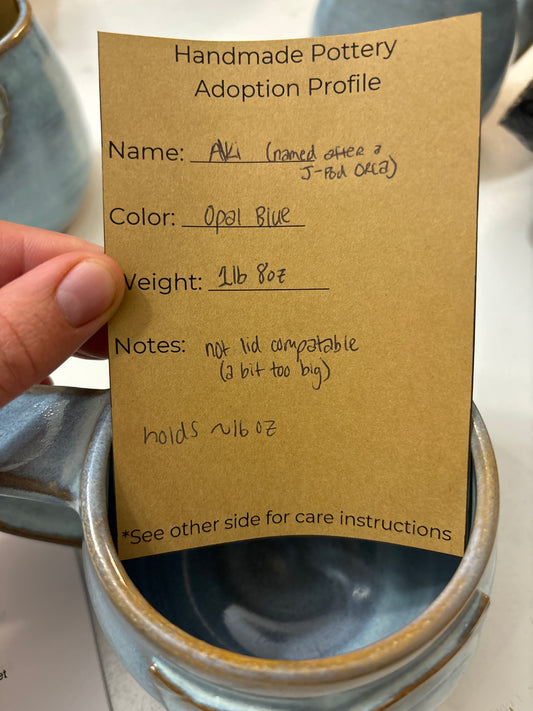 Handmade Pottery
Adoption Profile
Name: Aki (named after a
J-Pod orca)
Color: Opal Blue
Weight: 1lb 8oz
Notes: not lid compatable
(a bit too big)
holds ~16 oz
*See other side for care instructions
et